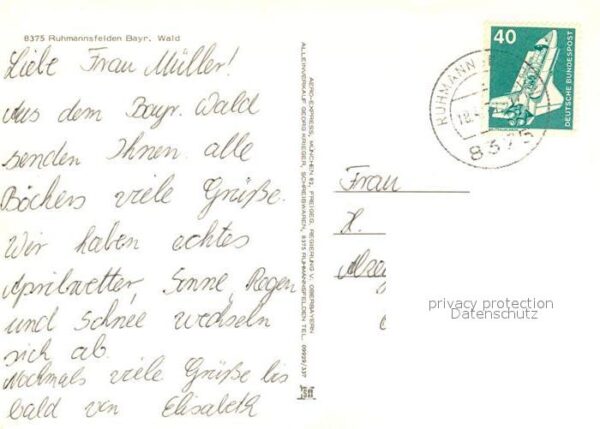 8375 Ruhmannsfelden Bayr. Wald
Liebe Frau Müller!
Aus dem Bayr. Wald
senden Ihnen alle
Böchers viele Grüße.
Wir haben echtes
Aprilwetter, Sonne, Regen
und Schnee wechseln
sich ab.
Nochmals viele Grüße bis
bald von Elisabeth
AERO-EXPRESS, MÜNCHEN 82, FREIGEG. REGIERUNG V. OBERBAYERN
ALLEINVERKAUF GEORG KRIEGER, SCHREIBWAREN, 8375 RUHMANNSFELDEN TEL. 09929/337
40
DEUTSCHE BUNDESPOST
RUHMANN
8375
Frau
privacy protection
Datenschutz